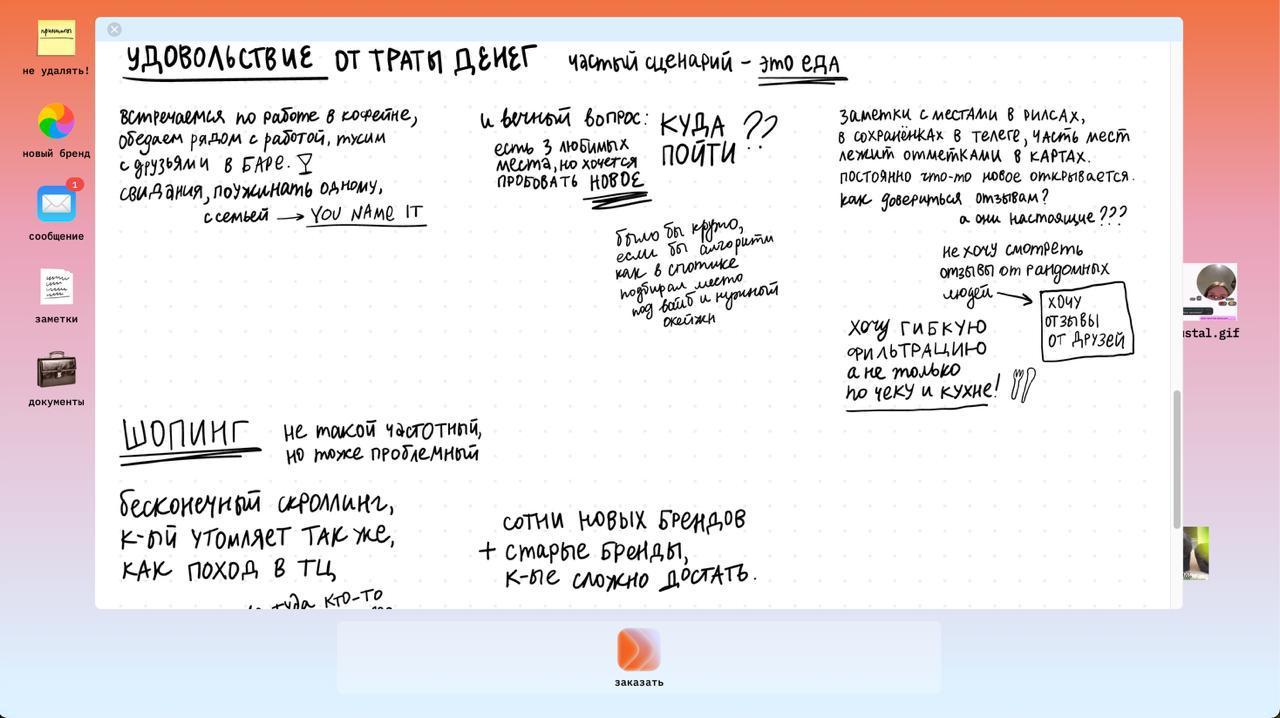 УДОВОЛЬСТВИЕ ОТ ТРАТЫ ДЕНЕГ
частый сценарий – это еда
встречаемся по работе в кофейне,
обедаем рядом с работой, тусим
с друзьями в БАРЕ.
свидания, поужинать одному,
с семьей → YOU NAME IT
и вечный вопрос:
КУДА
ПОЙТИ ??
есть 3 любимых
места, но хочется
пробовать НОВОЕ
было бы круто,
если бы алгоритм
как в спотике
подбирал место
под вайб и нужный
окейжн
заметки с местами в рилсах,
в сохранёнках в телеге, часть мест
лежит отметками в картах.
постоянно что-то новое открывается.
как довериться отзывам?
а они настоящие???
не хочу смотреть
отзывы от рандомных
людей →
хочу
отзывы
от друзей
хочу ГИБКУЮ
ФИЛЬТРАЦИЮ
а не только
по чеку и кухне!
ШОПИНГ
не такой частотный,
но тоже проблемный
бесконечный скроллинг,
к-ый утомляет так же,
как поход в ТЦ
сотни новых брендов
+ старые бренды,
к-ые сложно достать.
туда кто-то
не удалять!
новый бренд
1
сообщение
заметки
документы
ustal.gif
заказать